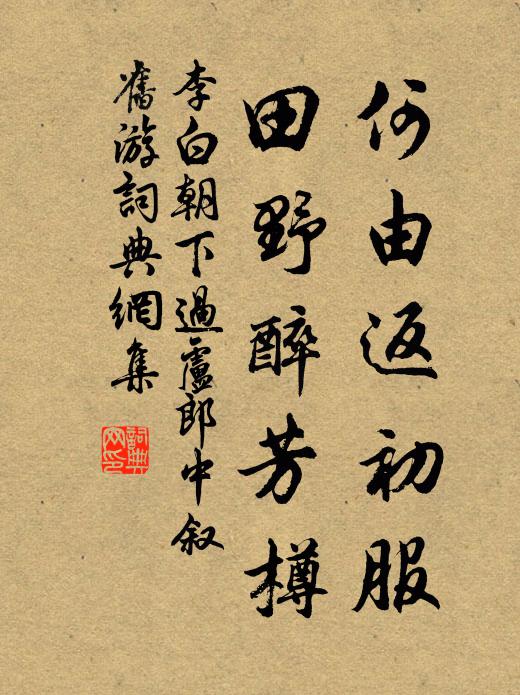 何由返初服
田野醉芳樽
李白朝下過盧郎中叙
舊游詞典網集
詞典
网印